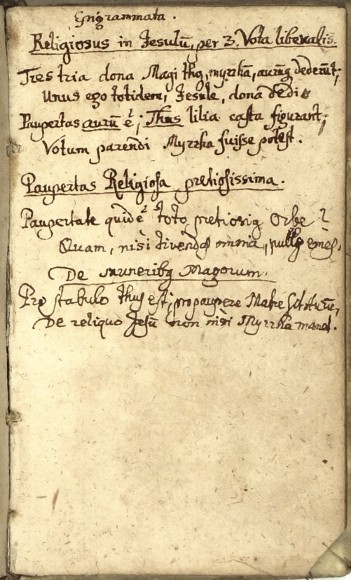 Epigrammata.
Religiosus in Jesulū, per 3. Vota liberalis.
Tres tria dona Magi thg, myrrhā, aurūq dederūt;
Unus ego totidem, Jesule, dona dedi.
Paupertas aurū ē; Thus lilia casta figurant;
Votum parendi Myrrha fuisse potest.
Paupertas Religiosa pretiosissima.
Paupertate quid ē toto pretiosiq Orbe?
Quam, nisi divendas omnia, nullg emes.
De muneribq Magorum.
Pro stabulo thus est; pro paupere Matre
De reliquo Jesu non nisi Myrrha manet.